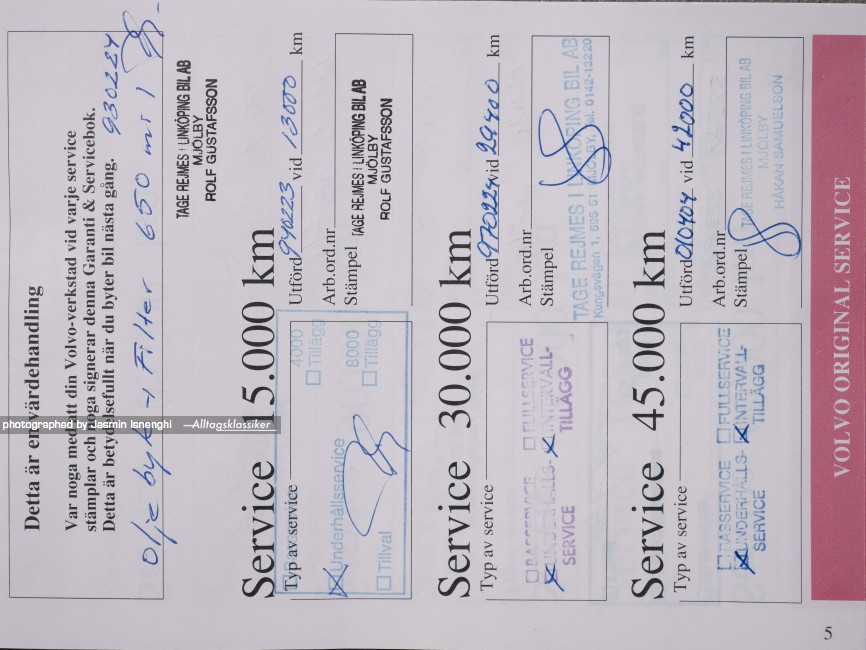 Detta är en värdehandling
Var noga med att din Volvo-verkstad vid varje service
stämplar och noga signerar denna Garanti & Servicebok.
Detta är betydelsefullt när du byter bil nästa gång.
930224
Olje byk + Filter 650 mil
TAGE REJMES I LINKÖPING BIL AB
MJÖLBY
ROLF GUSTAFSSON
Service 15.000 km
Typ av service
4000
Tillägg
8000
Tillägg
Underhållsservice
Tillval
Utförd 940223 vid 13000 km
Arb.ord.nr
Stämpel
TAGE REJMES I LINKÖPING BIL AB
MJÖLBY
ROLF GUSTAFSSON
Service 30.000 km
Typ av service
BASSERVICE
FULLSERVICE
UNDERHÅLLS-
SERVICE
INTERVALL-
TILLÄGG
Utförd 970224 vid 29400 km
Arb.ord.nr
Stämpel
TAGE REJMES I LINKÖPING BIL AB
Kungsvägen 1, 595 51 MJÖLBY, Tel. 0142-13220
Service 45.000 km
Typ av service
BASSERVICE
FULLSERVICE
UNDERHÅLLS-
SERVICE
INTERVALL-
TILLÄGG
Utförd 010404 vid 42000 km
Arb.ord.nr
Stämpel
TAGE REJMES I LINKÖPING BIL AB
MJÖLBY
HÅKAN SAMUELSON
VOLVO ORIGINAL SERVICE
5
photographed by Jasmin Isnenghi —Alltagsklassiker